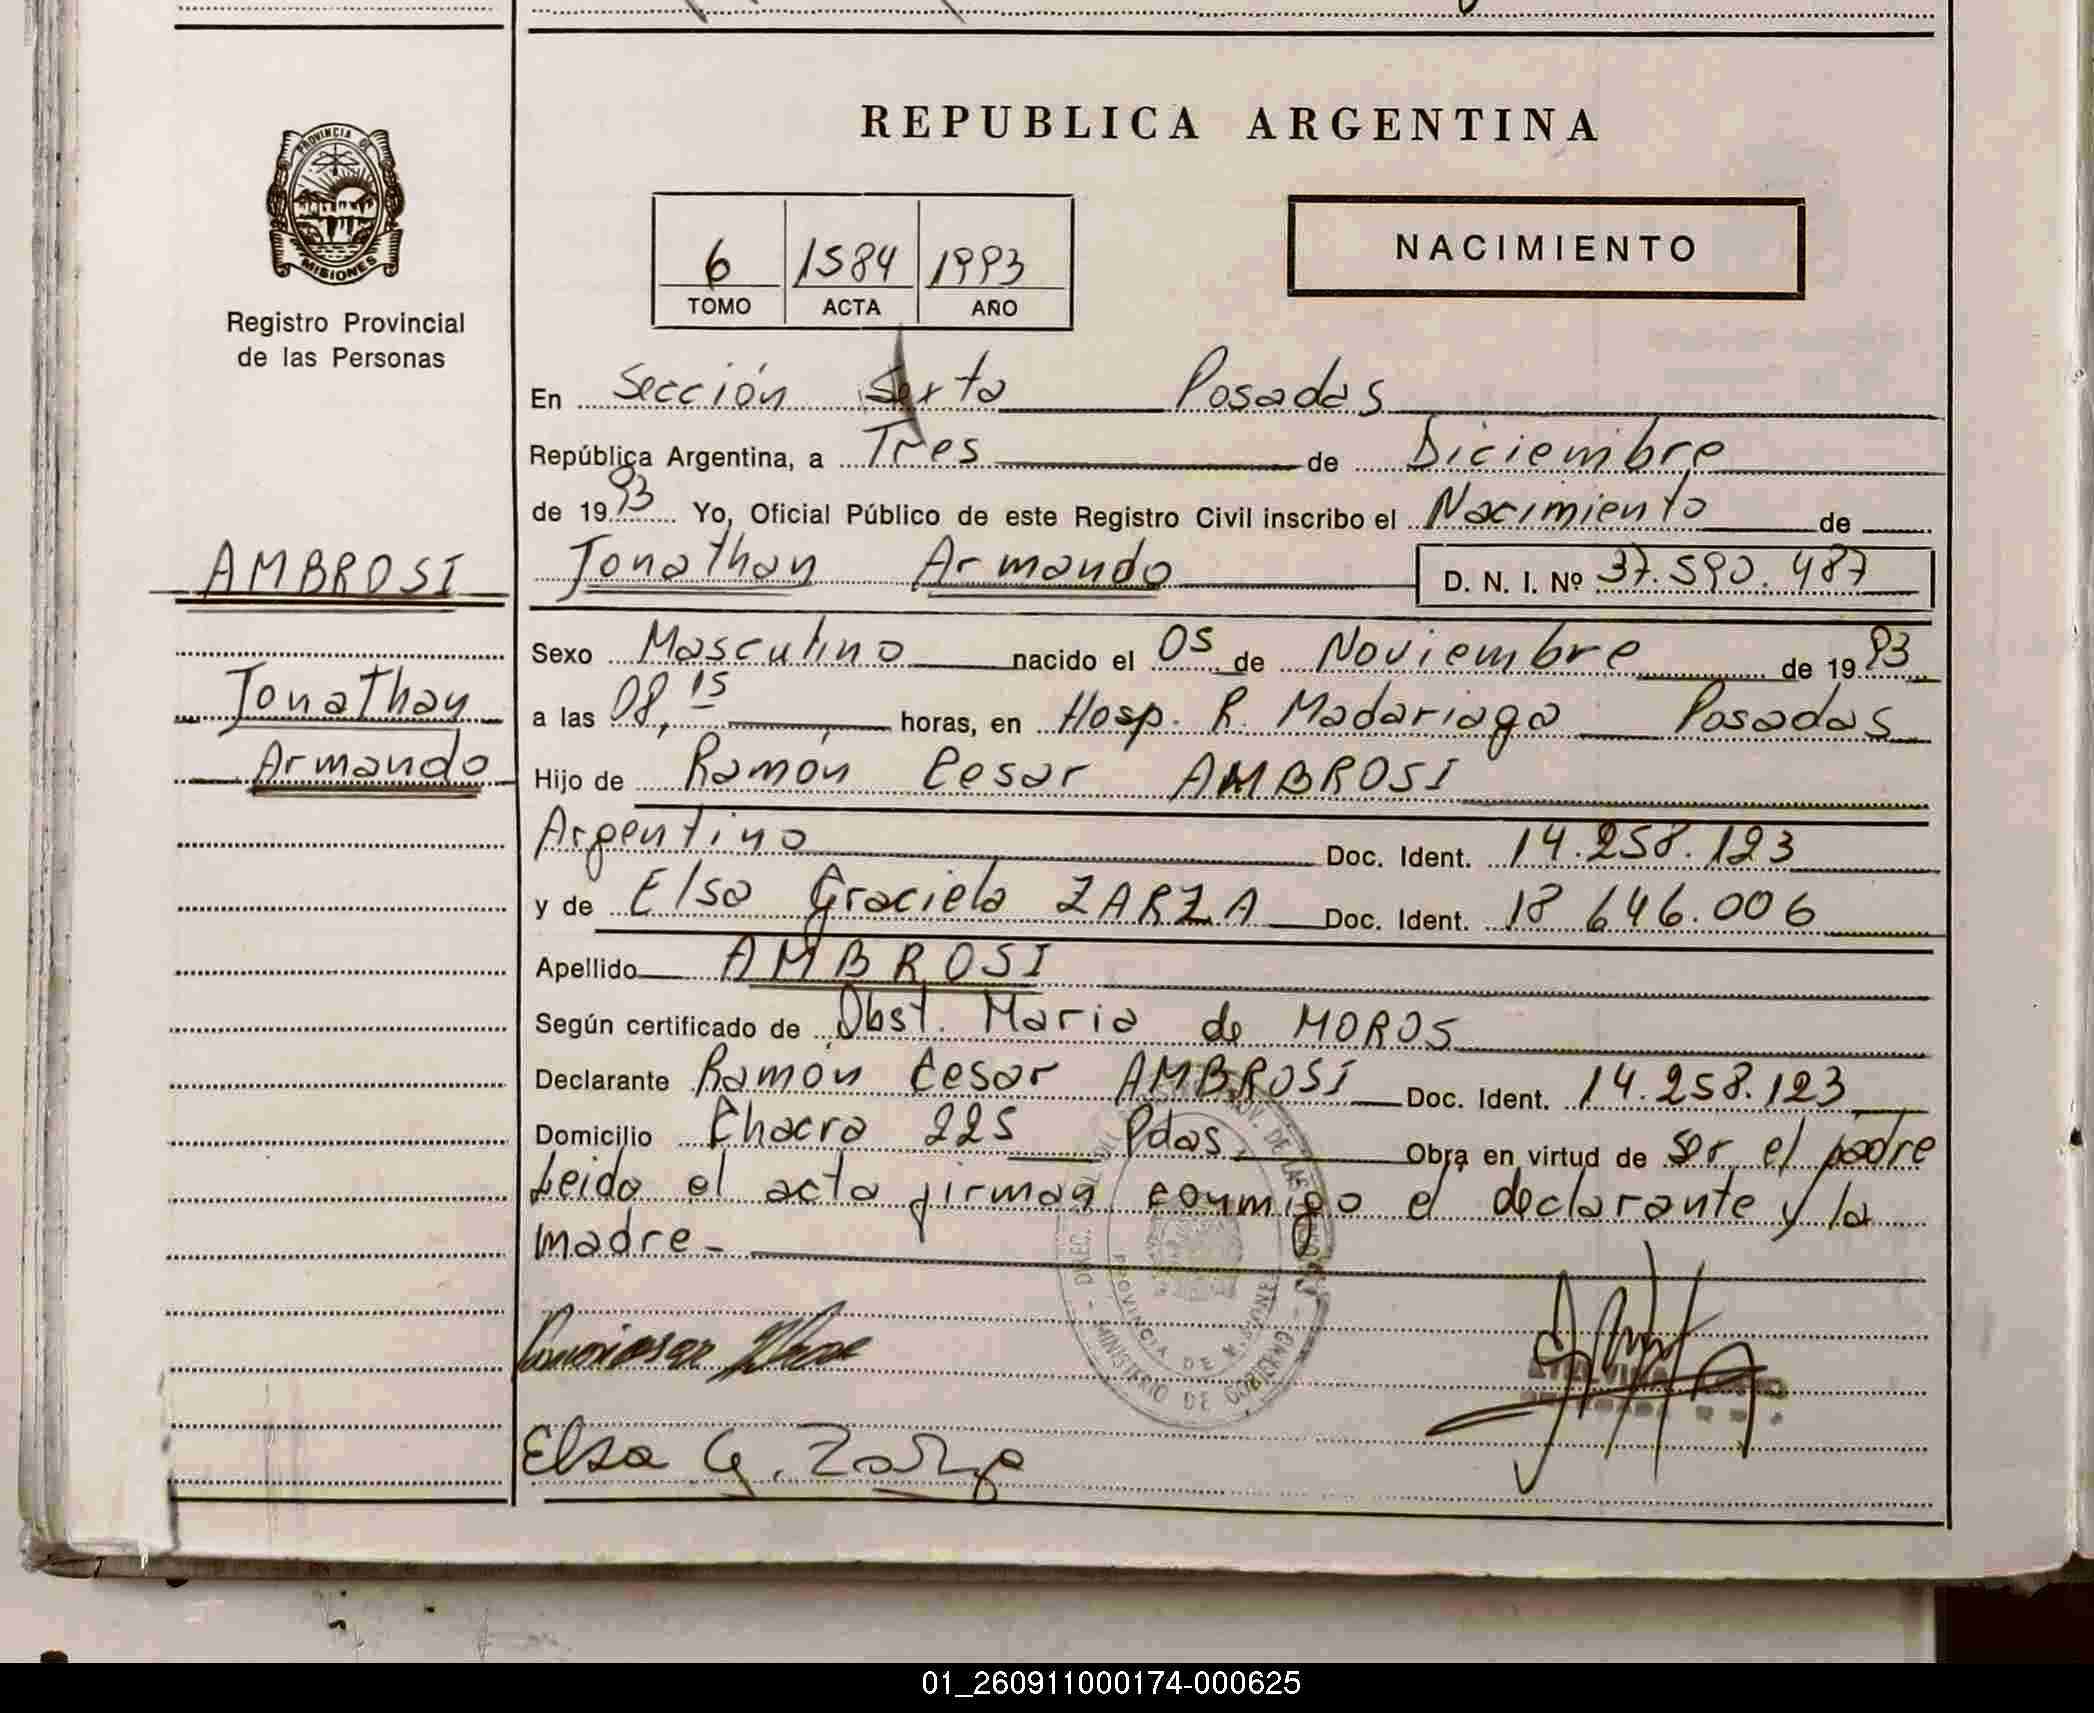 REPUBLICA ARGENTINA
PROVINCIA DE MISIONES
Registro Provincial
de las Personas
NACIMIENTO
6 1584 1993
TOMO ACTA AÑO
En Sección Sexta Posadas
República Argentina, a Tres de Diciembre
de 1993 Yo, Oficial Público de este Registro Civil inscribo el Nacimiento de
AMBROSI
Jonathan Armando D. N. I. Nº 37.590.487
Sexo Masculino nacido el 05 de Noviembre de 1993
Jonathan
a las 08,15 horas, en Hosp. R. Madariaga Posadas
Armando
Hijo de Ramón Cesar AMBROSI
Argentino Doc. Ident. 14.258.123
y de Elsa Graciela ZARZA Doc. Ident. 18 646.006
Apellido AMBROSI
Según certificado de Obst. Maria de MOROS
Declarante Ramón Cesar AMBROSI Doc. Ident. 14.258.123
Domicilio Chacra 225 Pdas Obra en virtud de ser el padre
Leido el acta firman conmigo el declarante y la
madre -
PROVINCIA DE MISIONES
MINISTERIO DE GOBIERNO
Elsa G. Zarza
01_260911000174-000625